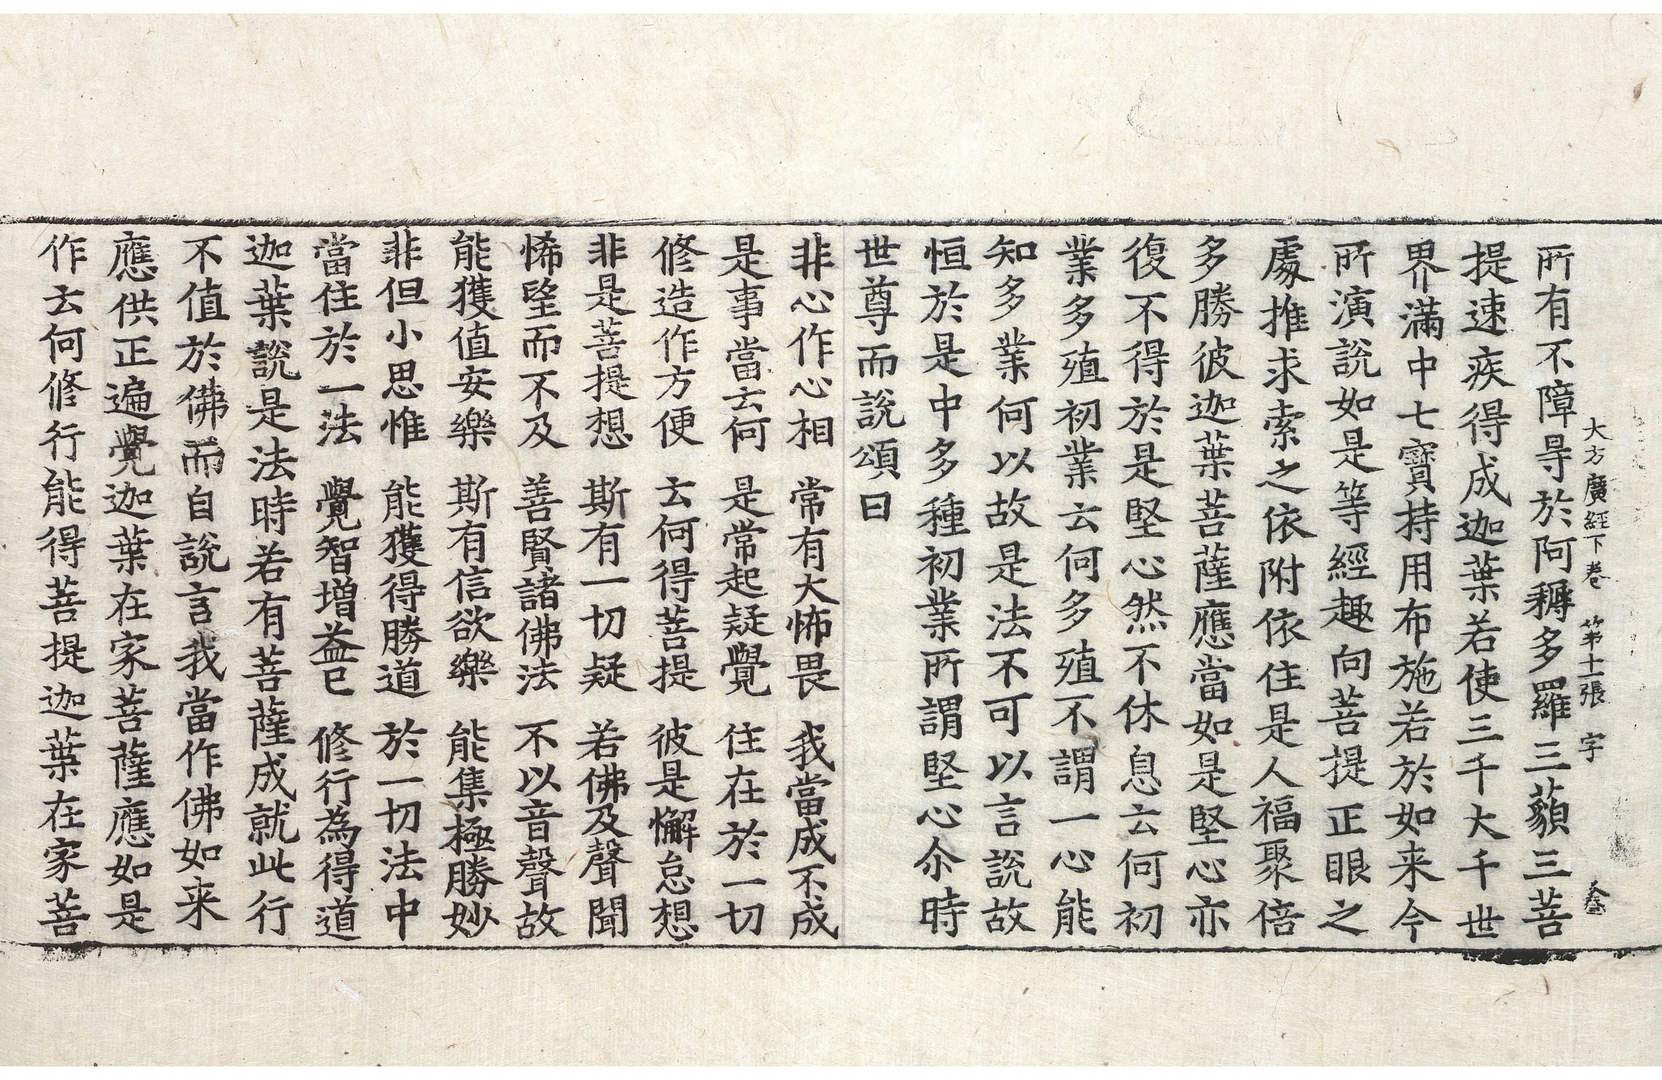 大方廣經下卷 第十一張 字
所有不障㝵於阿耨多羅三藐三菩
提速疾得成迦葉若使三千大千世
界滿中七寶持用布施若於如来今
所演說如是等經趣向菩提正眼之
處推求索之依附依住是人福聚倍
多勝彼迦葉菩薩應當如是堅心亦
復不得於是堅心然不休息云何初
業多殖初業云何多殖不謂一心能
知多業何以故是法不可以言說故
恒於是中多種初業所謂堅心尒時
世尊而說頌曰
非心作心相 常有大怖畏 我當成不成
是事當云何 是常起疑覺 住在於一切
修造作方便 云何得菩提 彼是懈怠想
非是菩提想 斯有一切疑 若佛及聲聞
悕望而不及 善賢諸佛法 不以音聲故
能獲值安樂 斯有信欲樂 能集極勝妙
非但小思惟 能獲得勝道 於一切法中
當住於一法 覺智增益已 修行為得道
迦葉說是法時若有菩薩成就此行
不值於佛而自說言我當作佛如来
應供正遍覺迦葉在家菩薩應如是
作云何修行能得菩提迦葉在家菩